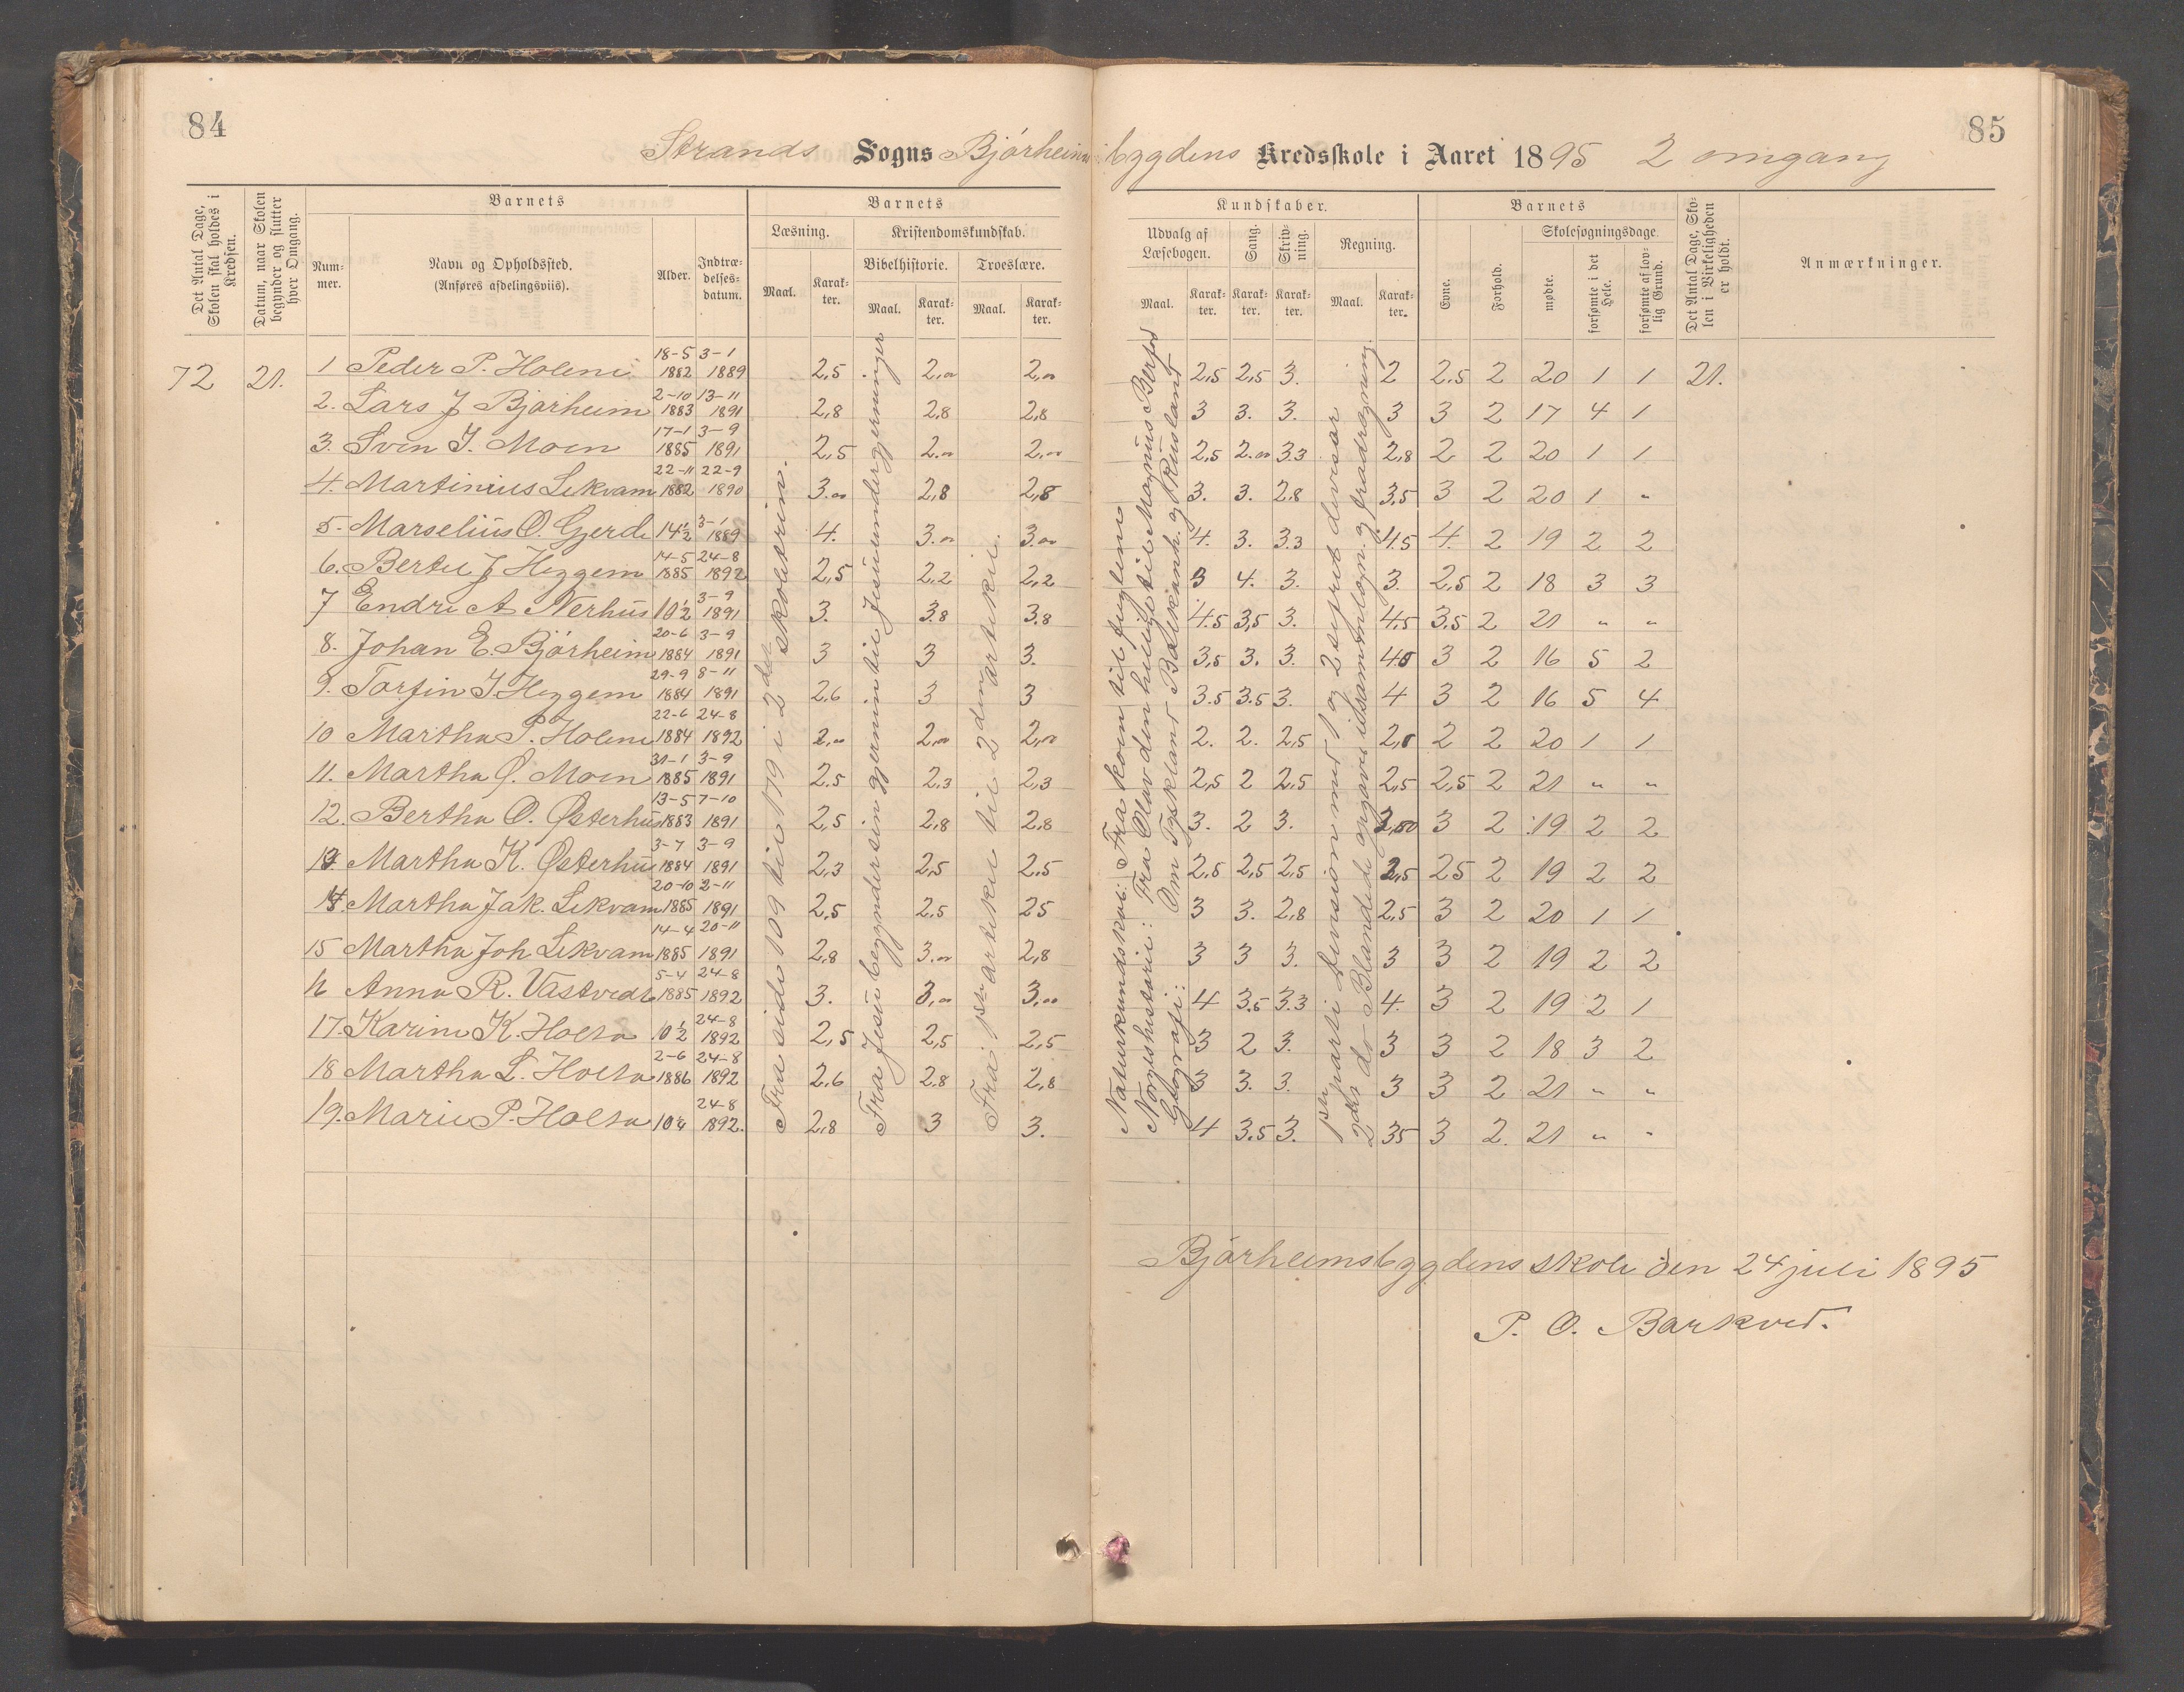 84
85
Strands Sogns Bjørheimsbygdens Kredsskole i Aaret 1895 2 omgang
Det Antal Dage, Skolen skal holdes i Kredsen.
Datum, naar Skolen begynder og slutter hver Omgang.
Barnets
Nummer.
Navn og Opholdssted. (Anføres afdelingsviis).
Alder.
Indtrædelses-datum.
Barnets
Læsning.
Maal.
Karakter.
Kristendomskundskab.
Bibelhistorie.
Maal.
Karakter.
Troeslære.
Maal.
Karakter.
Kundskaber.
Udvalg af Læsebogen.
Maal.
Karakter.
Sang.
Karakter.
Skrivning.
Karakter.
Regning.
Maal.
Karakter.
Barnets
Evne.
Forhold.
Skolesøgningsdage.
mødte.
forsømte i det Hele.
forsømte af lovlig Grund.
Det Antal Dage, Skolen i Virkeligheden er holdt.
Anmærkninger.
72 21. 1 Peder P. Holene 18-5 1882 3-1 1889 2,5 2,00 2,00 2,5 2,5 3. 2 2.5 2 20 1 1 21.
2. Lars J Bjørheim 2-10 1883 13-11 1891 2,8 2,8 2,8 3 3. 3. 3 3 2 17 4 1
3. Sven I. Moen 17-1 1885 3-9 1891 2,5 2.00 2,00 2,5 2.00 3.3 2,8 2 2 20 1 1
4. Martinius Lekvam 22-11 1882 22-9 1890 3.00 2,8 2,8 3. 3. 2.8 3,5 3 2 20 1 "
5. Marselius O. Gjerde 14 1/2 3-1 1889 4. 3.00 3.00 4. 3. 3.3 4.5 4. 2 19 2 2
6. Bertel J Heggem 14-5 1885 24-8 1892 2,5 2,2 2,2 3 4. 3. 3. 2,5 2 18 3 3
7 Endre A Nerhus 10 1/2 3-9 1891 3. 3.8 3.8 4.5 3,5 3. 4.5 3.5 2 21 " "
8. Johan E. Bjørheim 20-6 1884 3-9 1891 3 3 3. 3,5 3. 3. 4.5 3 2 16 5 2
9. Torfin I. Heggem 29-9 1884 8-11 1891 2.6 3 3 3.5 3.5 3. 4 3 2 16 5 4
10 Martha P. Holene 22-6 1884 24-8 1892 2,00 2,00 2,00 2. 2. 2,5 2,8 2 2 20 1 1
11. Martha Q. Moen 31-1 1885 3-9 1891 2.5 2,3 2,3 2,5 2 2,5 2,5 2,5 2 21 " "
12. Bertha O. Østerhus 13-5 1883 7-10 1891 2,5 2,8 2,8 3. 2 3. 3,00 3 2 19 2 2
13 Martha K. Østerhus 3-7 1884 3-9 1891 2,3 2,5 2.5 2,5 2,5 2,5 2,5 25 2 19 2 2
14. Martha Jak. Lekvam 20-10 1885 2-11 1891 2,5 2.5 25 3 3. 2,8 2,5 3 2 20 1 1
15 Martha Joh Lekvam 14-4 1885 20-11 1891 2,8 3.00 2,8 3 3 3. 3 3 2 19 2 2
16 Anna R. Vastvedt 5-4 1885 24-8 1892 3. 3,00 3,00 4 3.5 3.3 4. 3 2 19 2 1
17. Karine K. Holta 10 1/2 24-8 1892 2,5 2,5 2,5 3 2 3. 3 3 2 18 3 2
18 Martha L. Holta 2-6 1886 24-8 1892 2.6 2.8 2,8 3 3. 3. 3 3 2 21 " "
19. Marie P. Holta 10 1/4 24-8 1892. 2,8 3 3. 4 3.5 3. 35 3 2. 21 " "
Fra side 109 til 179 i 2det skoletrin.
Fra Jesu begynder sin gjerning til Jesu undergjerninger
Fra 1ste artikel til 2den artikel.
Naturkundskab: Fra koen til fuglene
Norgeshistorie: Fra Olav den hellige til Magnus Berfod
Geografi: Om Tyskland Balkanh. og Rusland
1ste parti division med 1 og 2 sifret divisor
2det do Blandede opgaver i sammenlægn. og fradragning.
Bjørheimsbygdens skole den 24 juli 1895
P. O. Barkved.